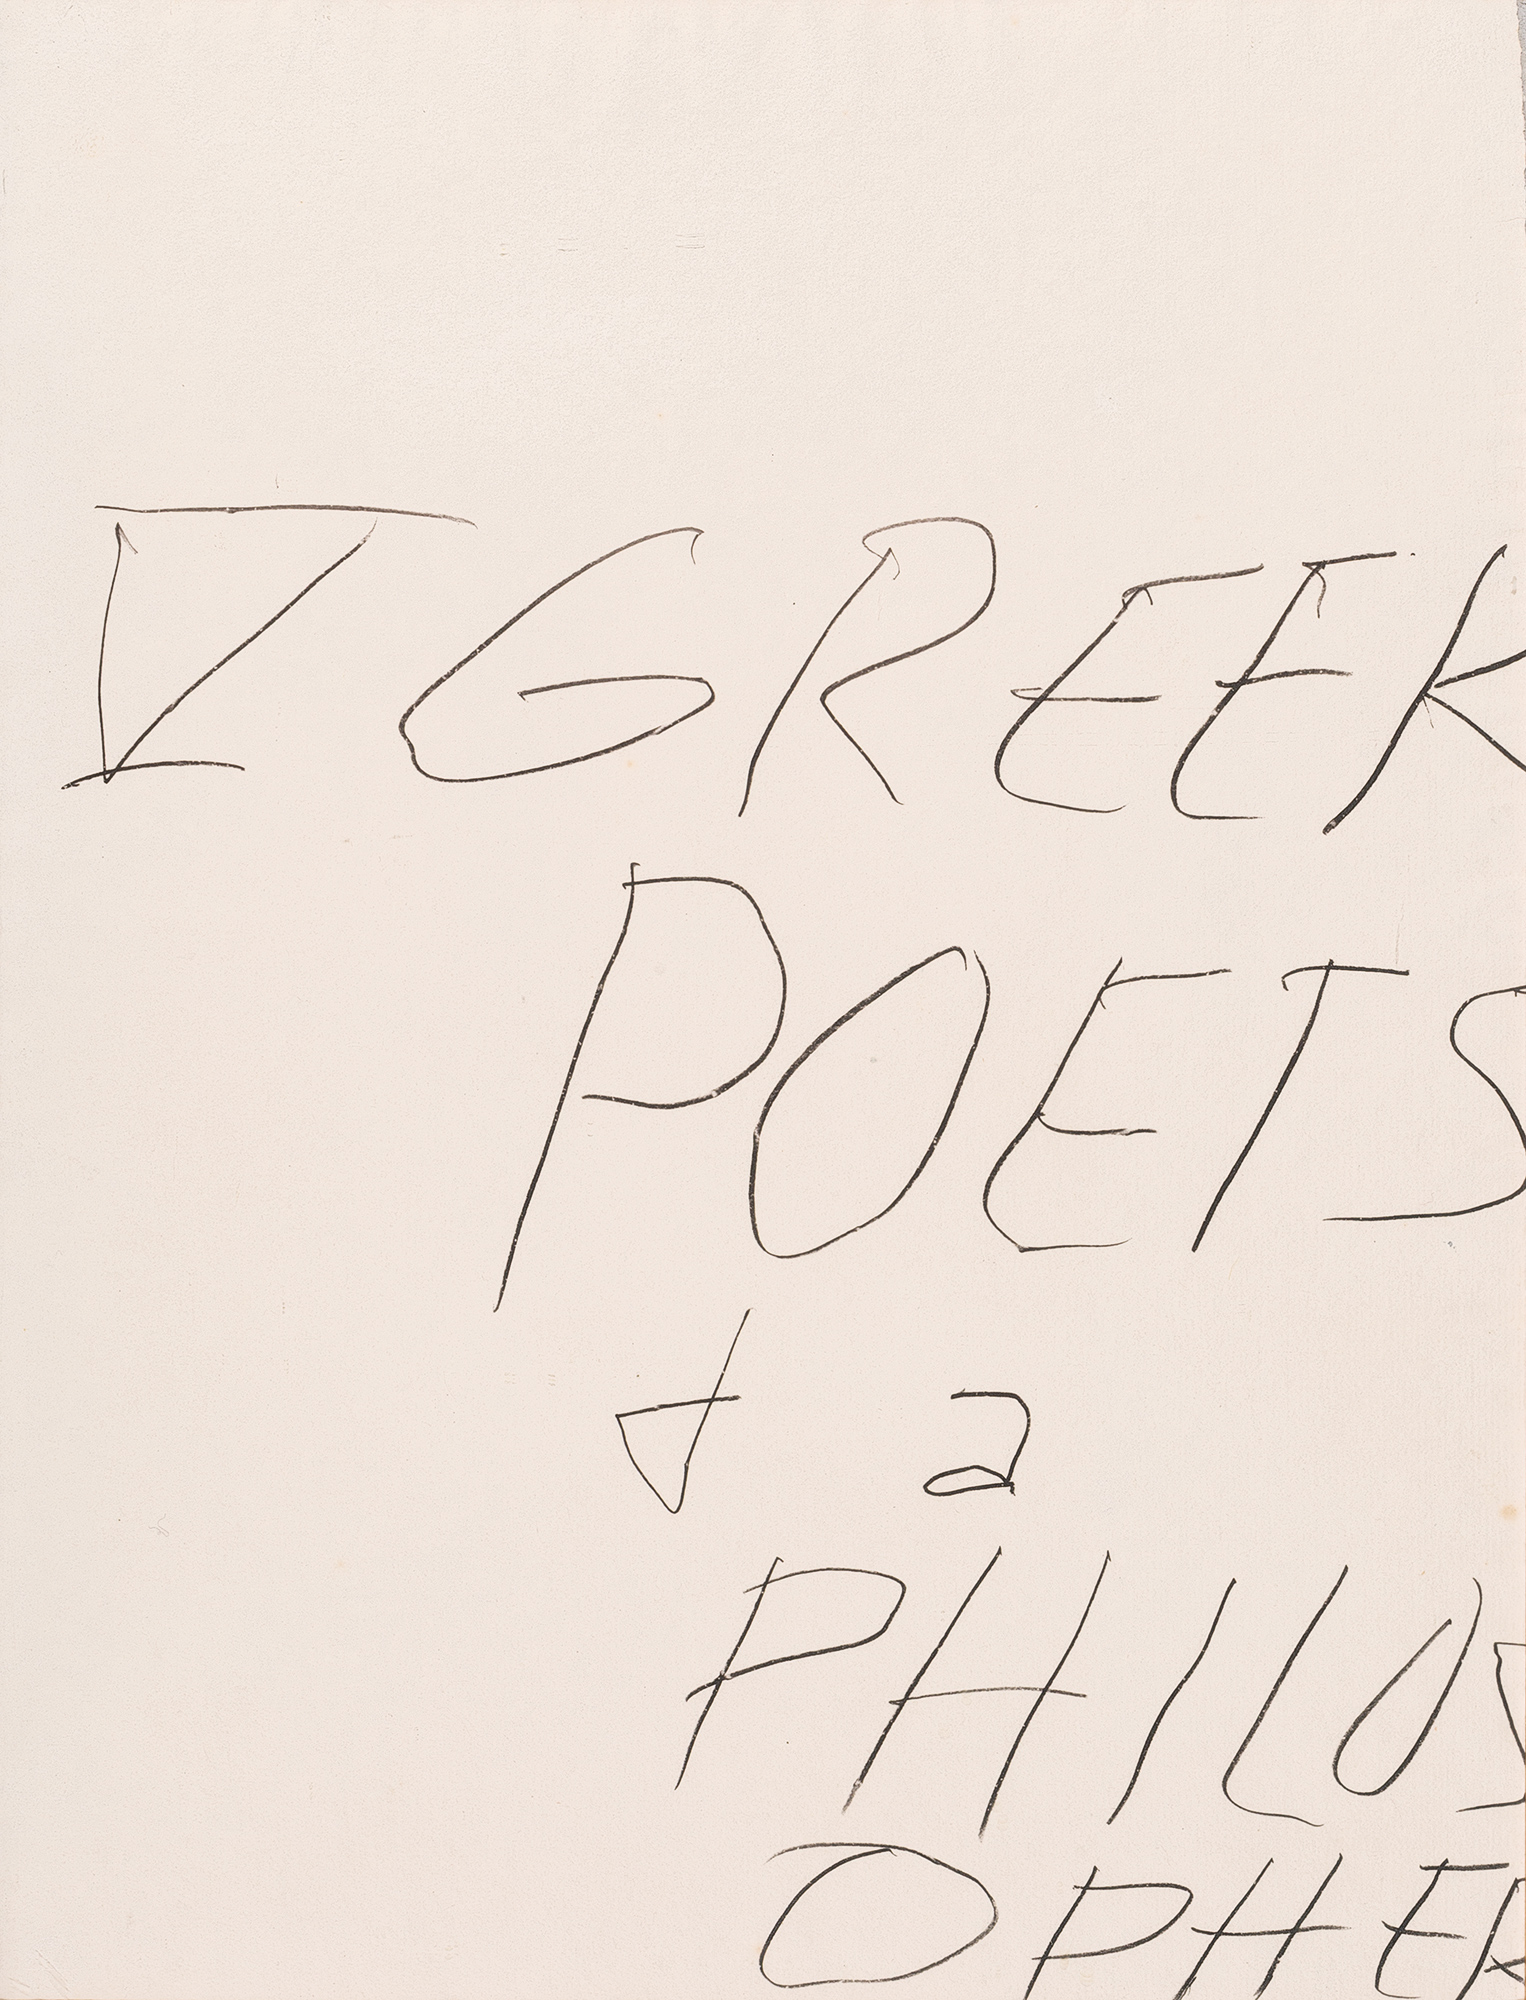 V GREEK
POETS
+ a
PHILOS
OPHER